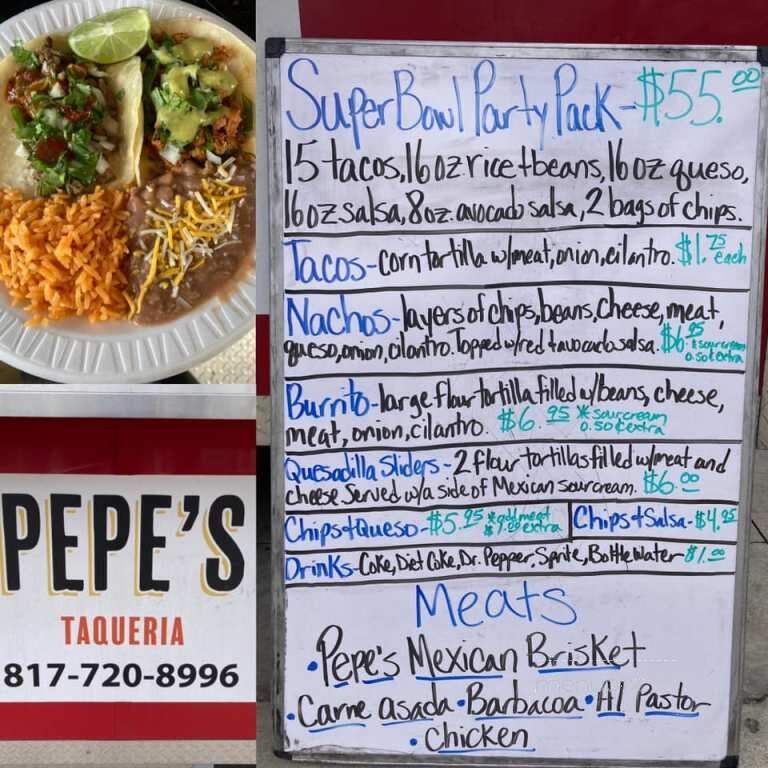 SuperBowl Party Pack - $55.00
15 tacos, 16oz rice + beans, 16oz queso,
16oz salsa, 8oz. avocado salsa, 2 bags of chips.
Tacos - corn tortilla w/meat, onion, cilantro. $1.75 each
Nachos - layers of chips, beans, cheese, meat,
queso, onion, cilantro. Topped w/red + avocado salsa. $6.95 *sour cream 0.50¢ extra
Burrito - large flour tortilla filled w/beans, cheese,
meat, onion, cilantro. $6.95 *sour cream 0.50¢ extra
Quesadilla Sliders - 2 flour tortillas filled w/meat and
cheese Served w/a side of Mexican sour cream. $6.00
Chips + Queso - $5.95 *add meat $1.00 extra Chips + Salsa - $4.95
Drinks - Coke, Diet Coke, Dr. Pepper, Sprite, Bottle Water $1.00
Meats
• Pepe's Mexican Brisket
• Carne asada • Barbacoa • Al Pastor
• Chicken
PEPE'S
TAQUERIA
817-720-8996